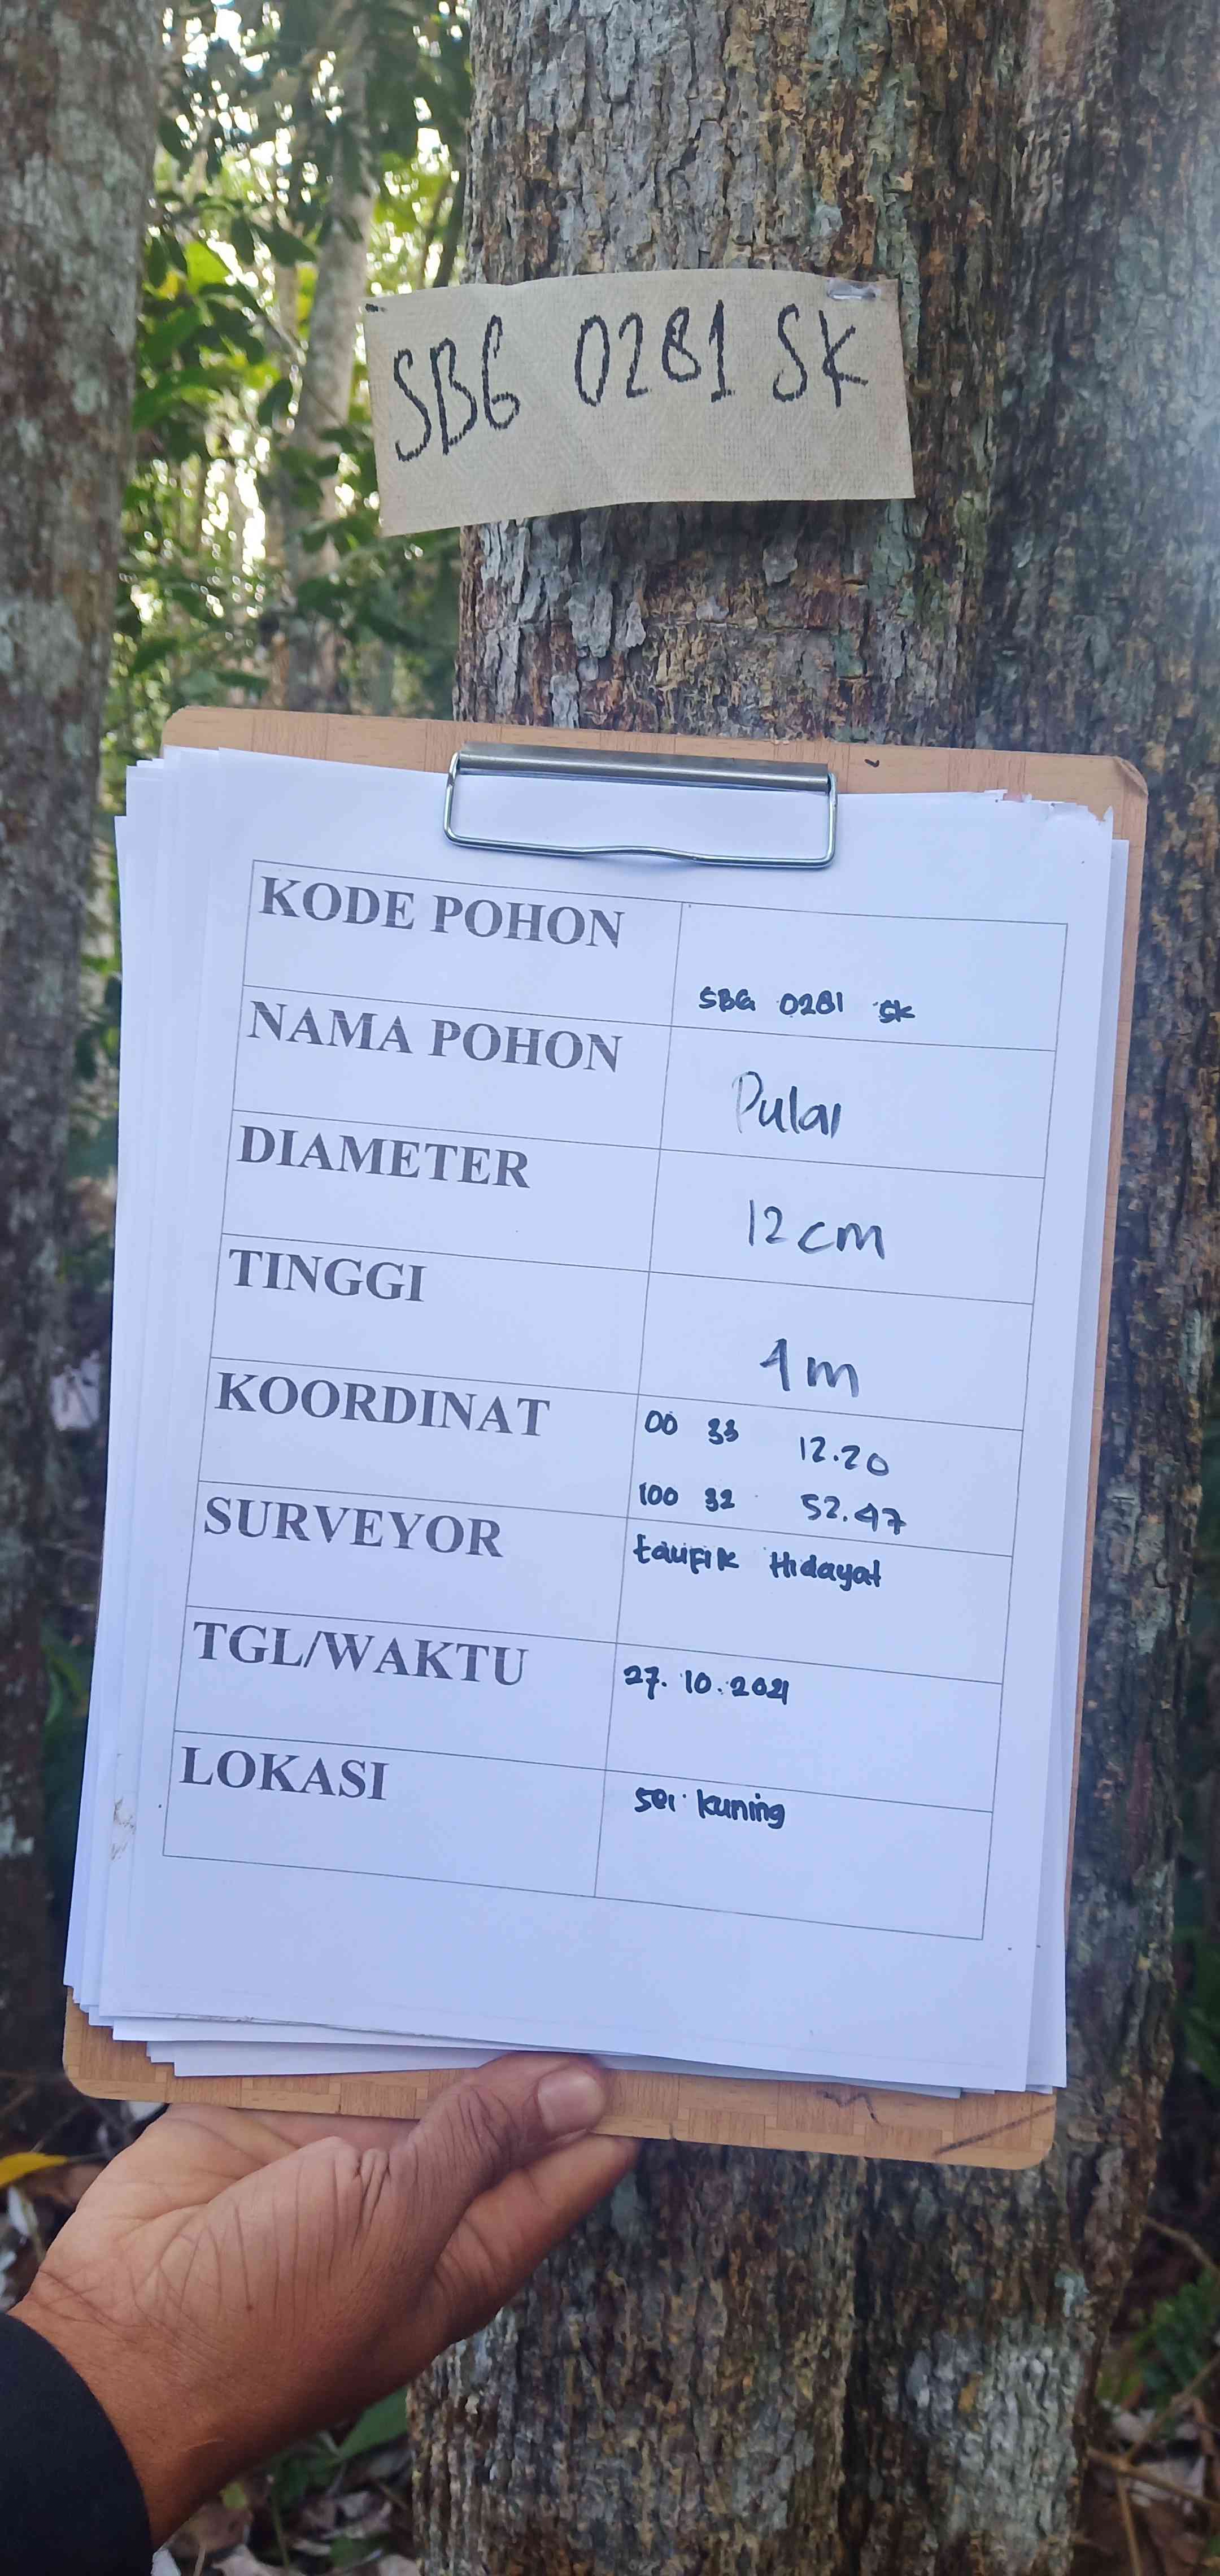 SBG 0281 SK
KODE POHON
SBG 0281 SK
NAMA POHON
Pulai
DIAMETER
12 cm
TINGGI
4 m
KOORDINAT
00 33 12.20
100 32 52.47
SURVEYOR
taufik Hidayat
TGL/WAKTU
27.10.2021
LOKASI
sei kuning